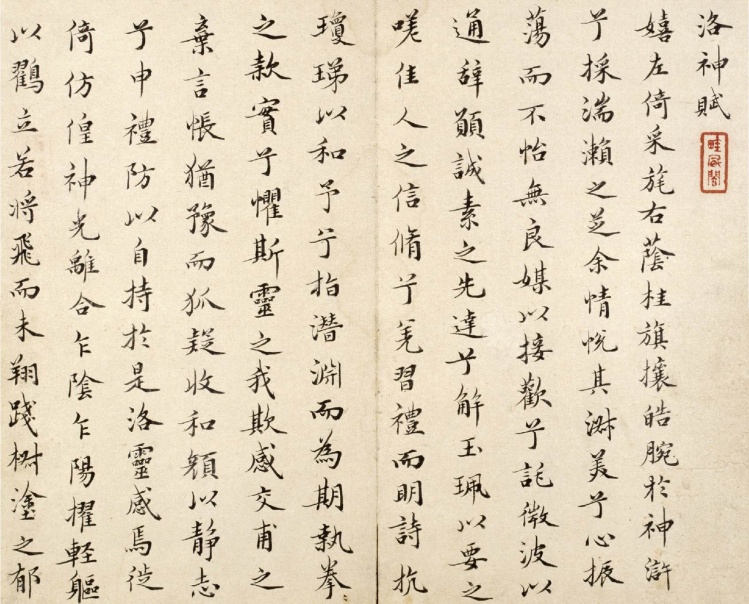 洛神賦
嬉左倚采旄右蔭桂旗攘皓腕於神滸
兮採湍瀨之芝余情悅其淑美兮心振
蕩而不怡無良媒以接歡兮託微波以
通辭願誠素之先達兮解玉珮以要之
嗟佳人之信脩兮羌習禮而明詩抗
瓊珶以和予兮指潛淵而為期執拳〻
之款實兮懼斯靈之我欺感交甫之
棄言悵猶豫而狐疑收和顏以靜志
兮申禮防以自持於是洛靈感焉徙
倚仿偟神光離合乍陰乍陽擢軽軀
以鶴立若將飛而未翔踐椒塗之郁